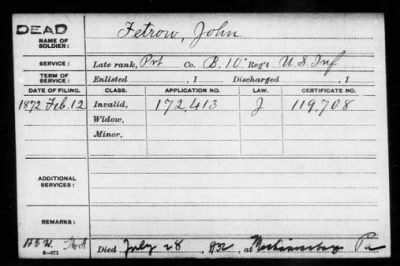 DEAD
NAME OF SOLDIER: Fetrow, John
SERVICE: Late rank, Prt Co. B. 10" Reg't U.S. Inf
TERM OF SERVICE: Enlisted , 1 Discharged , 1
DATE OF FILING. CLASS. APPLICATION NO. LAW. CERTIFICATE NO.
1872 Feb. 12 Invalid, 172,413 J 119,708
Widow,
Minor,
ADDITIONAL SERVICES:
REMARKS:
Died July 28 , at Mechanicsburg Pa